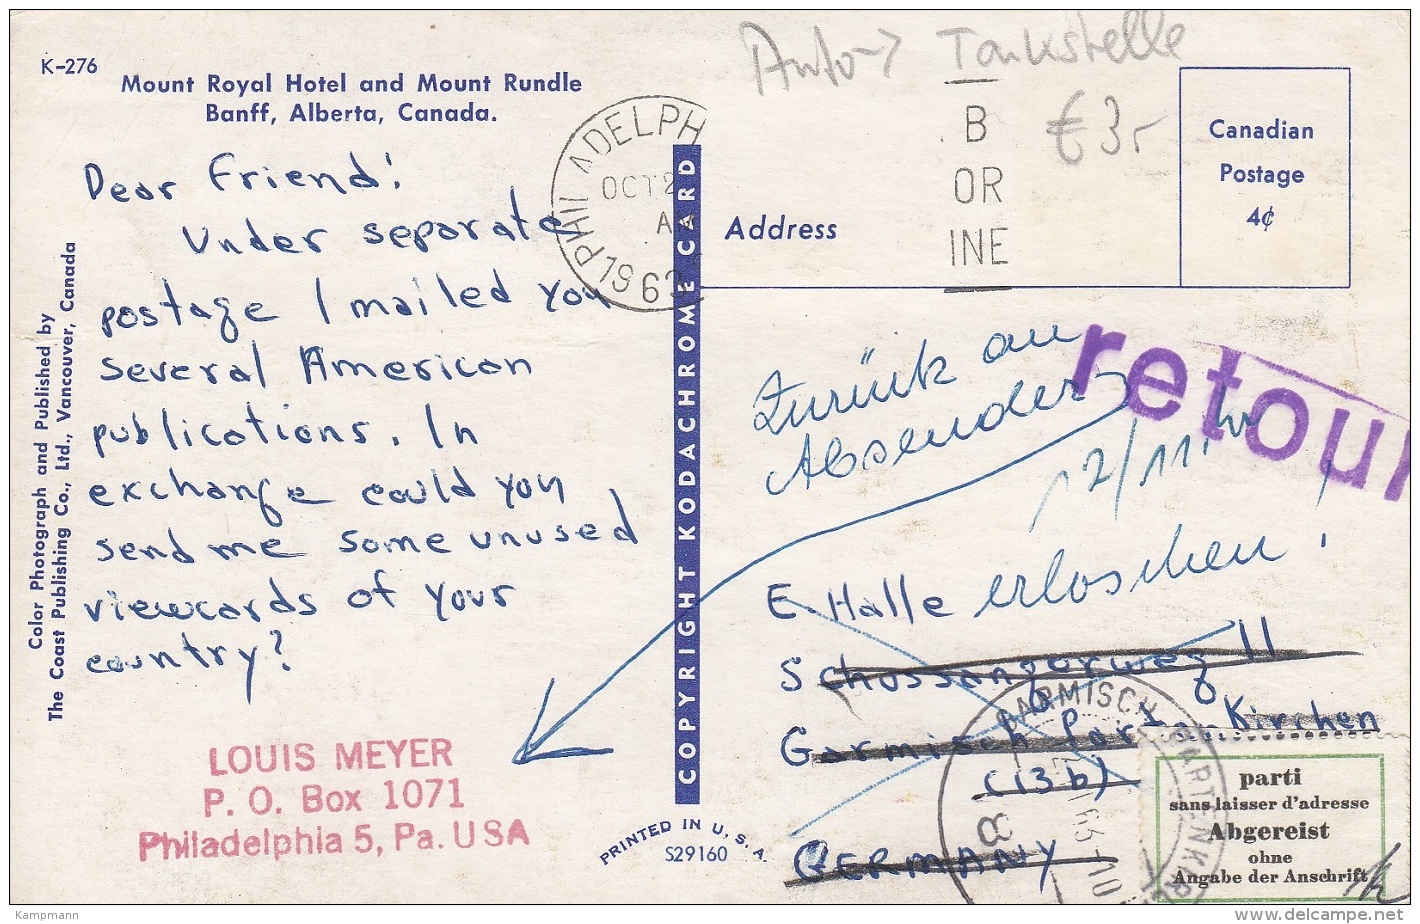 K-276
Mount Royal Hotel and Mount Rundle
Banff, Alberta, Canada.
Dear Friend!
Under separate
postage I mailed you
several American
publications. In
exchange could you
send me some unused
viewcards of your
country?
LOUIS MEYER
P. O. Box 1071
Philadelphia 5, Pa. USA
Color Photograph and Published by
The Coast Publishing Co., Ltd., Vancouver, Canada
PHILADELPH
OCT 2
1963
COPYRIGHT KODACHROME CARD
PRINTED IN U. S. A.
S29160
Auto → Tankstelle
€ 3,-
B
OR
INE
Address
Canadian
Postage
4¢
retour
Zurück an
Absender
12/11.
E Halle erloschen!
Schussangerweg 11
Garmisch Partenkirchen
(13b)
GERMANY
GARMISCH-PARTENKIR
parti
sans laisser d'adresse
Abgereist
ohne
Angabe der Anschrift
Kampmann
www.delcampe.net